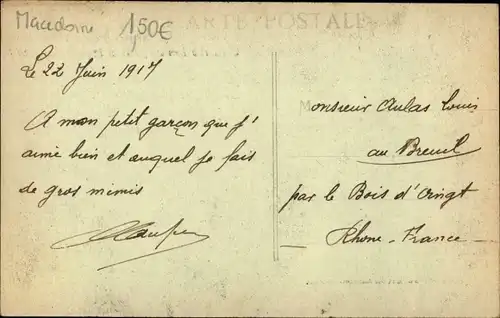 Macedoine 1,50€
CARTE POSTALE
Le 22 Juin 1917
A mon petit garçon que j'
aime bien et auquel je fais
de gros mimis
Monsieur Aulas Louis
au Breuil
par le Bois d'Oingt
Rhone - France -